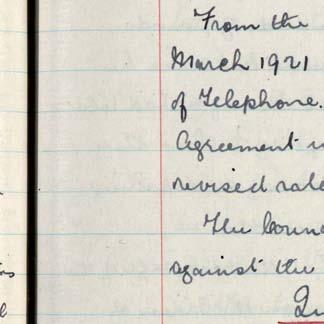 From the
March 1921
of Telephone.
Agreement
revised rate
The Coun
against the